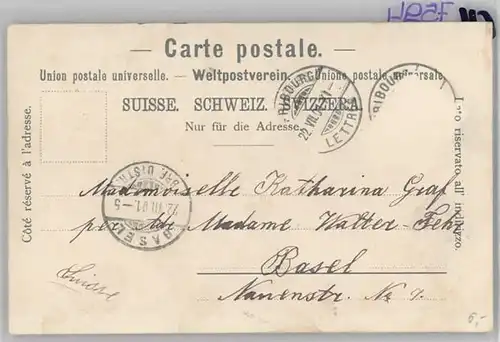 — Carte postale. —
Union postale universelle. — Weltpostverein. — Unione postale universale.
SUISSE. SCHWEIZ. SVIZZERA.
Nur für die Adresse.
Côté réservé à l'adresse.
Lato riservato all' indirizzo.
FRIBOURG
22.VII.01
LETTRES
FRIBOURG
BASEL
22.VII.01.-5
BRF. DISTR.
Mademoiselle Katharina Graf
Madame Walter-
Basel
No
(Suisse)
5,-